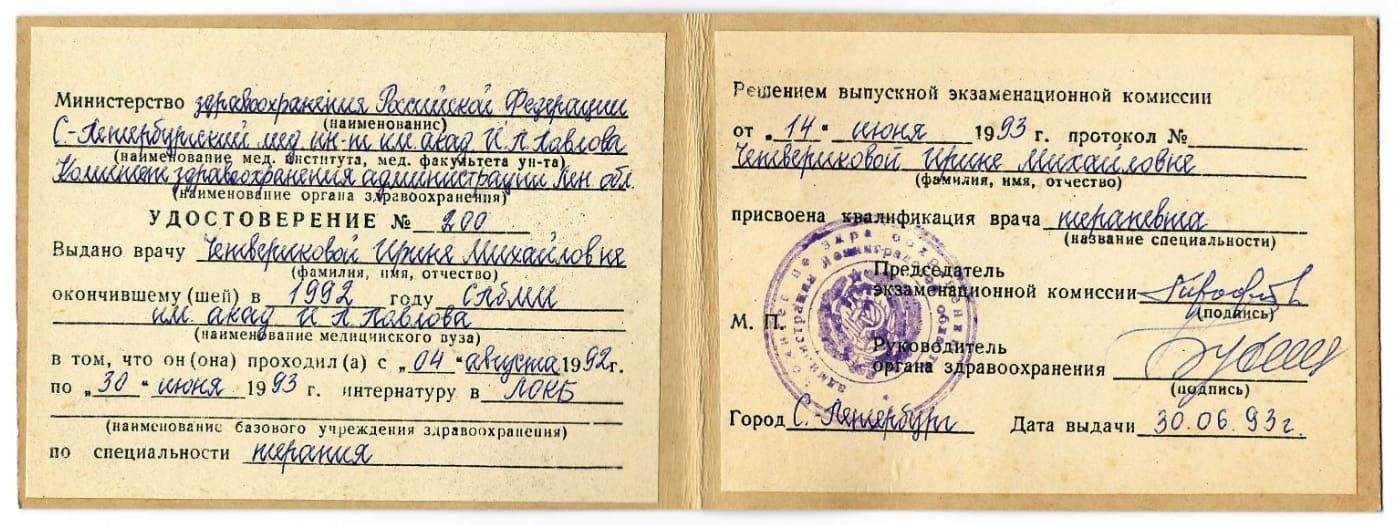 Министерство здравоохранения Российской Федерации
(наименование)
С-Петербургский мед ин-т им. акад И П Павлова
(наименование мед. института, мед. факультета ун-та)
Комитет здравоохранения администрации Лен обл.
(наименование органа здравоохранения)
УДОСТОВЕРЕНИЕ № 200
Выдано врачу Четвериковой Ирине Михайловне
(фамилия, имя, отчество)
окончившему (шей) в 1992 году СПбМИ
им. акад И П Павлова
(наименование медицинского вуза)
в том, что он (она) проходил (а) с „04 “ августа 1992г.
по „30 “ июня 1993 г. интернатуру в ЛОКБ
(наименование базового учреждения здравоохранения)
по специальности терапия
Решением выпускной экзаменационной комиссии
от „14“ июня 1993 г. протокол №
Четвериковой Ирине Михайловне
(фамилия, имя, отчество)
присвоена квалификация врача терапевта
(название специальности)
Председатель
экзаменационной комиссии
(подпись)
М. П.
Руководитель
органа здравоохранения
(подпись)
Город С.-Петербург Дата выдачи 30.06.93г.